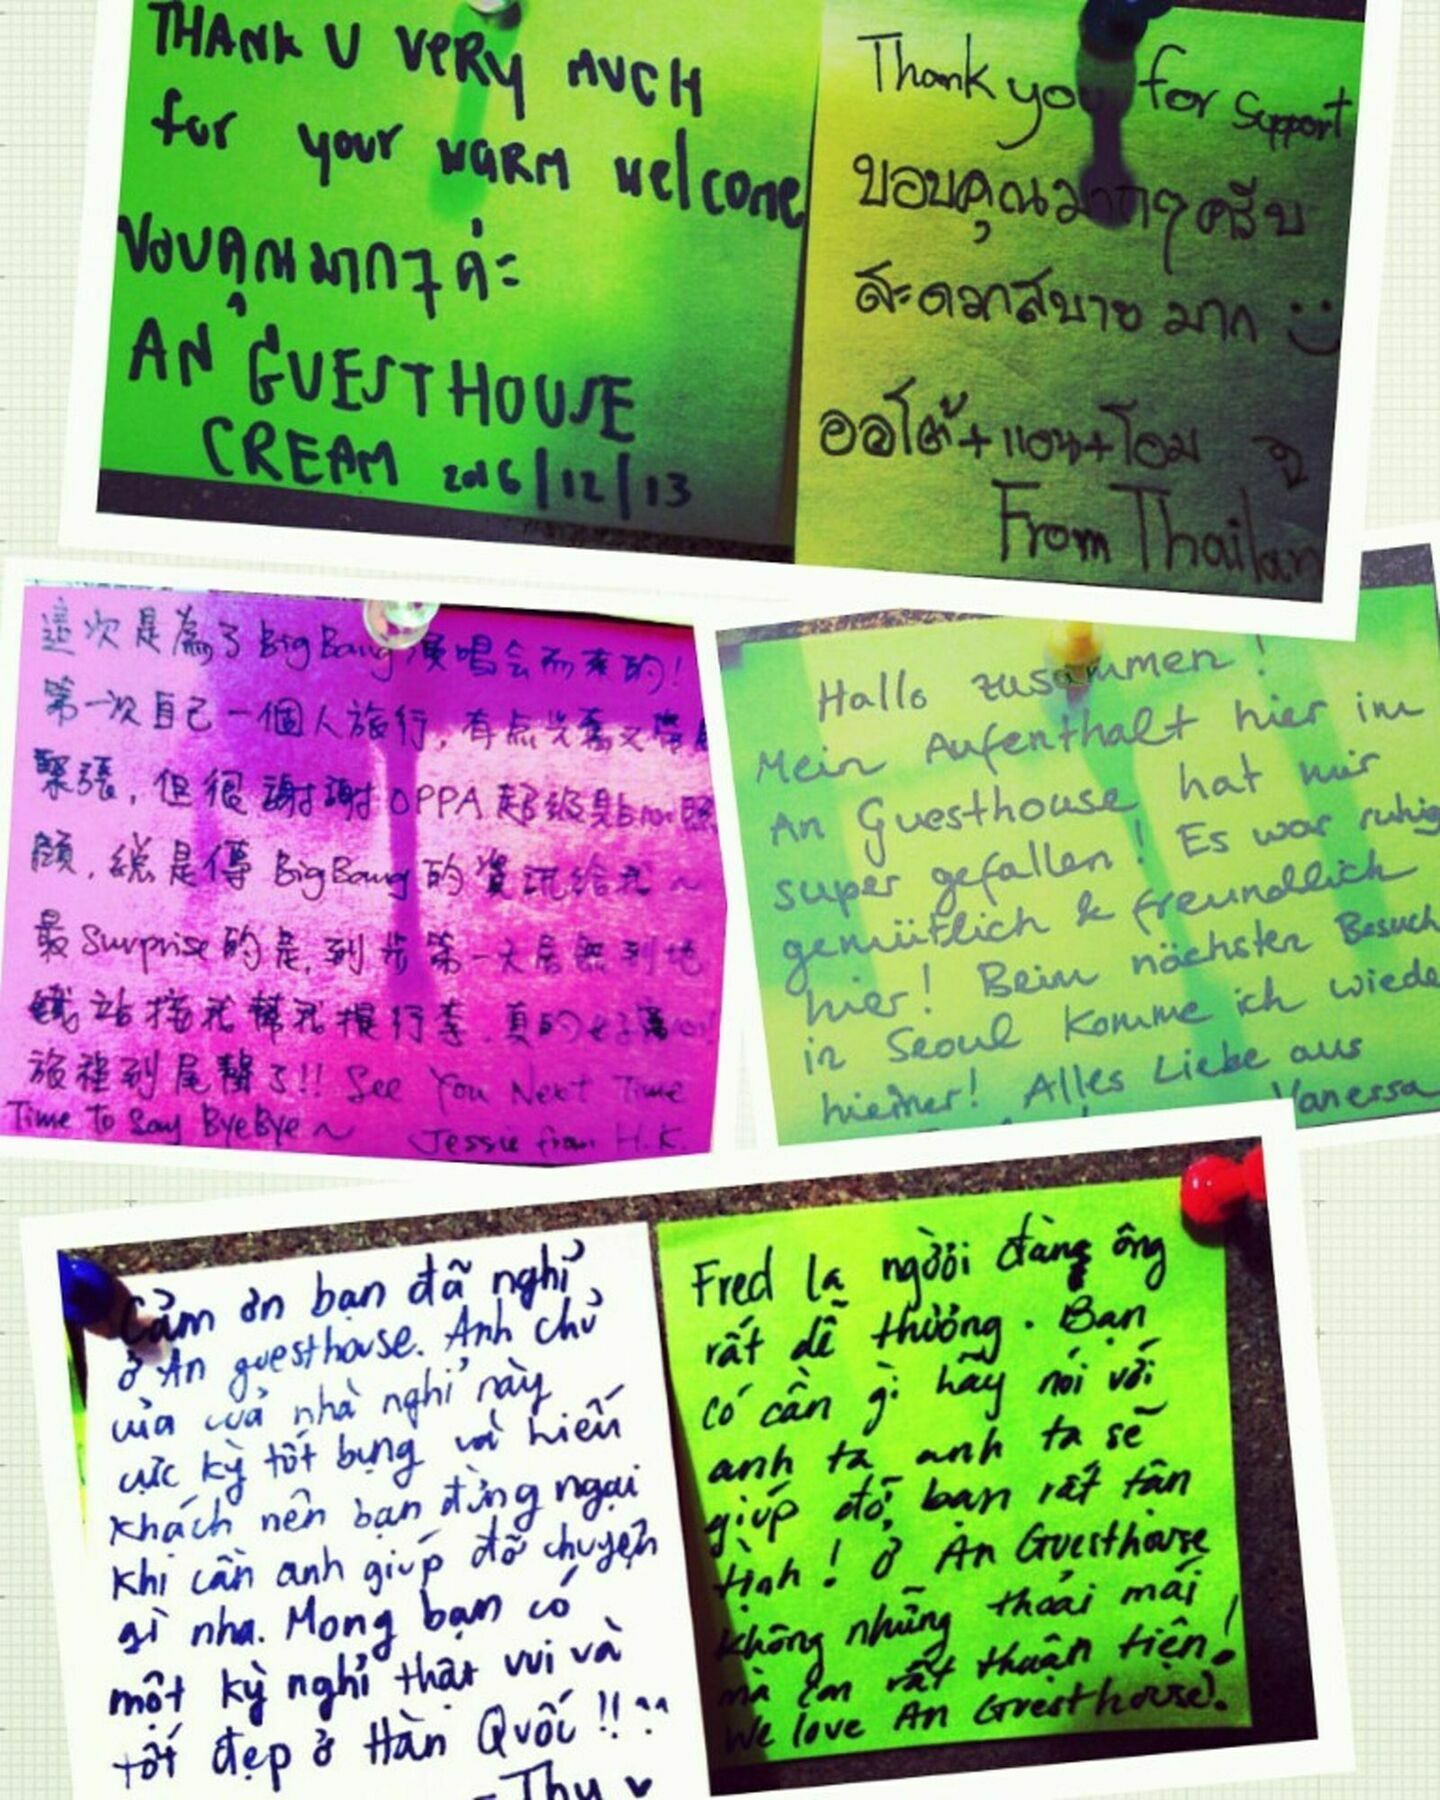 THANK U VERY MUCH
for your WARM welcome
ขอบคุณมากๆ ค่ะ
AN GUESTHOUSE
CREAM 2016/12/13
Thank you for support
ขอบคุณมากๆ ครับ
สะดวกสบาย มาก :)
ออโต้+แอน+โอม
From Thailan
這次是為了BigBang演唱会而來的!
第一次自己一個人旅行, 有点兴奮又帶
緊張, 但很謝謝OPPA超級貼心照
顧, 總是傳BigBang的資訊給我~
最Surprise的是, 到步第一天居然到地
鐵站接我幫我提行李, 真的好窩心!
旅程到尾聲了!! See You Next Time
Time To Say ByeBye~ Jessie from H.K.
Hallo zusammen!
Mein Aufenthalt hier im
An Guesthouse hat mir
super gefallen! Es war ruhig
gemütlich & freundlich
hier! Beim nächsten Besuch
in Seoul komme ich wiede
hierher! Alles Liebe aus
Vanessa
Cảm ơn bạn đã nghỉ
ở An guesthouse. Anh chủ
của cuả nhà nghỉ này
cực kỳ tốt bụng và hiếu
khách nên bạn đừng ngại
khi cần anh giúp đỡ chuyện
gì nha. Mong bạn có
một kỳ nghỉ thật vui và
tốt đẹp ở Hàn Quốc!! ^^
- Thu ♥
Fred la người đàng ông
rất dễ thưởng. Bạn
có cần gì hãy nói với
anh ta anh ta sẽ
giúp đỡ, bạn rất tận
tình! Ở An Guesthouse
không những thoải mái
mà còn rất thuận tiện!
We love An Guesthouse!